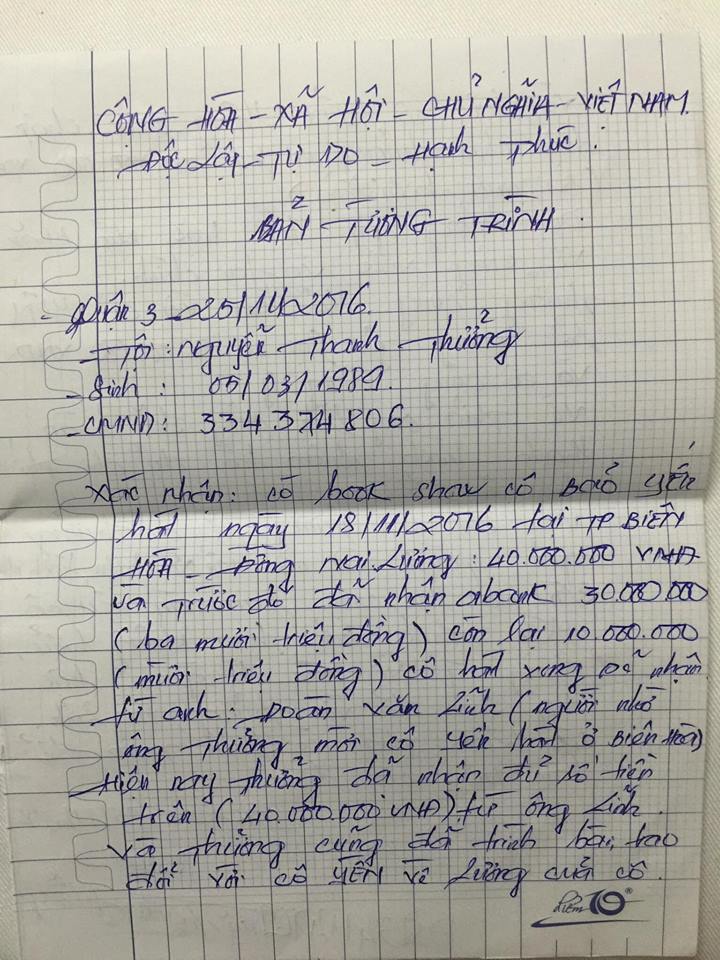 CỘNG HÒA - XÃ HỘI - CHỦ NGHĨA - VIỆT NAM.
Độc Lập - Tự Do - Hạnh Phúc.
BẢN TƯỜNG TRÌNH.
- Quận 3 - 25/11/2016.
- Tôi: Nguyễn Thanh Thưởng
- Sinh: 05/03/1989.
- CMND: 334374806.
Xác nhận: có book show cô Bảo Yến
hát ngày 18/11/2016 tại TP BIÊN
HÒA - Đồng Nai. Lương: 40.000.000 VNĐ
và trước đó đã nhận abank 30.000.000
(ba mươi triệu đồng) còn lại 10.000.000
(mười triệu đồng) cô hát xong đã nhận
từ anh: Đoàn Văn Lĩnh (người nhờ
ông Thưởng mời cô Yến hát ở Biên Hòa)
- Hiện nay Thưởng đã nhận đủ số tiền
trên (40.000.000 VNĐ) từ ông Lĩnh.
Và Thưởng cũng đã trình bài, trao
đổi với cô YẾN về lương của cô.
điểm 10